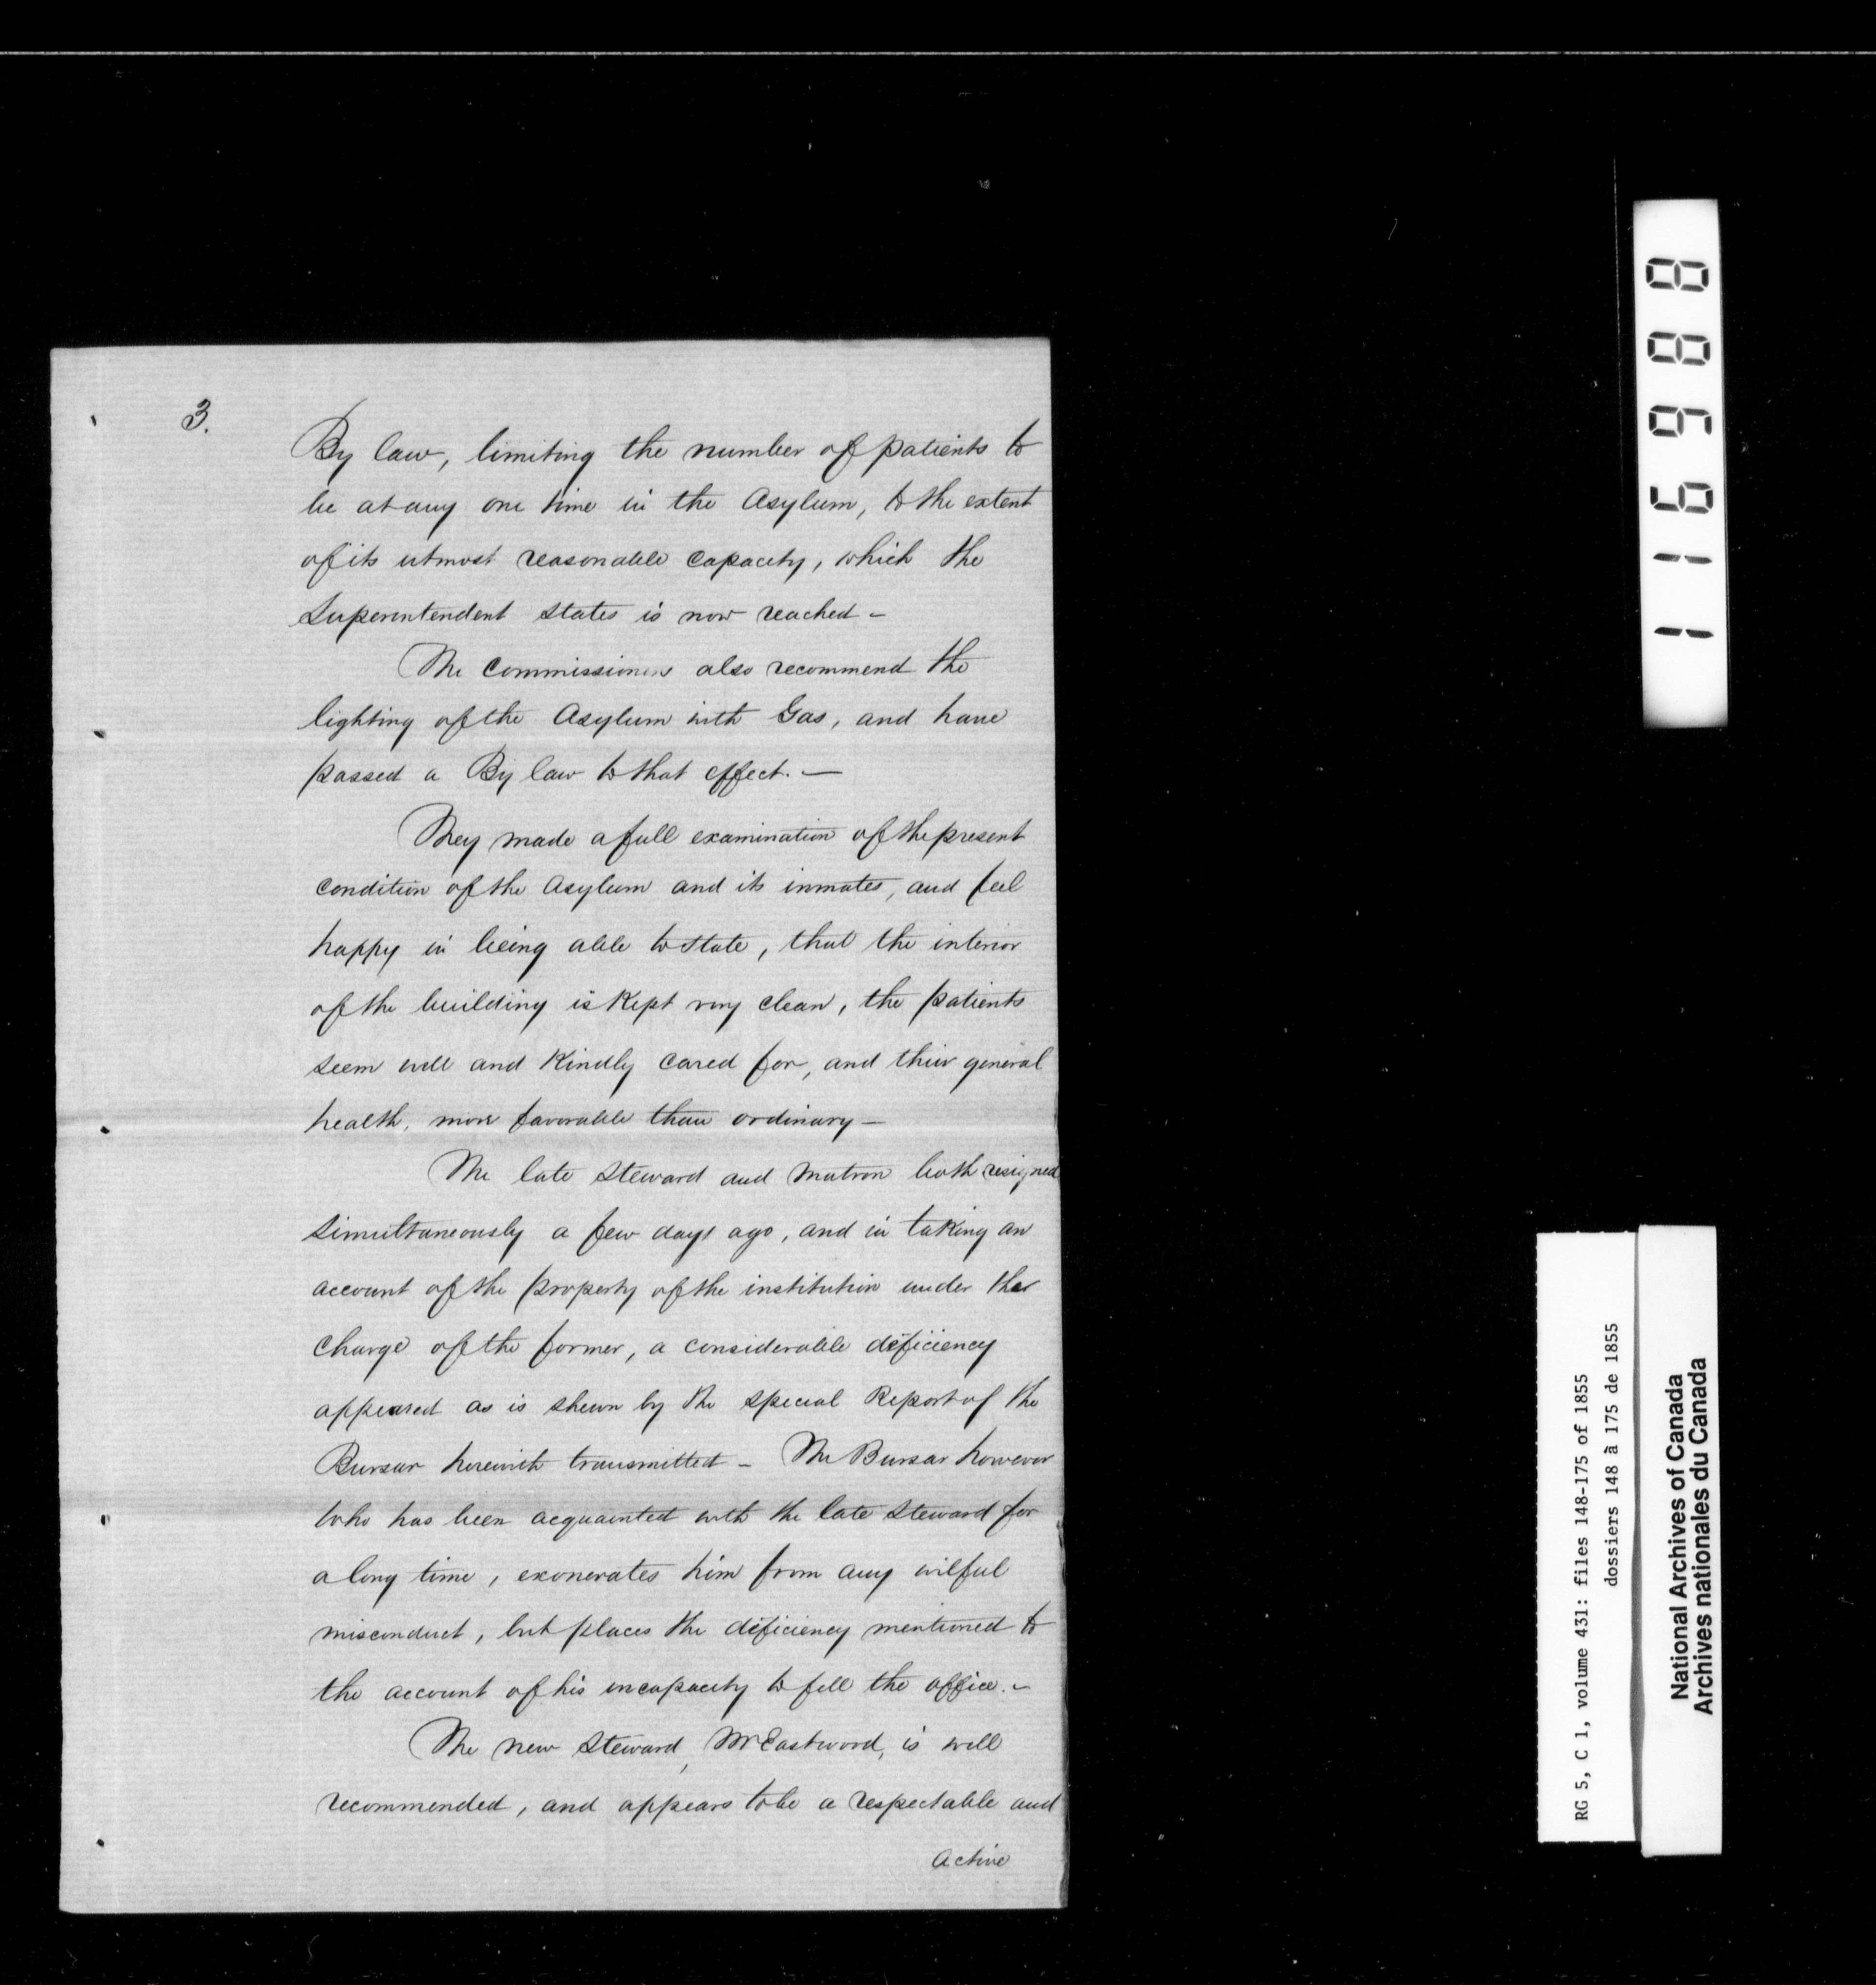 3.
By law, limiting the number of patients to
be at any one time in the Asylum, to the extent
of its utmost reasonable capacity, which the
Superintendent states is now reached –
The Commissioners also recommend the
lighting of the Asylum with Gas, and have
passed a By law to that effect. —
They made a full examination of the present
condition of the Asylum and its inmates, and feel
happy in being able to state, that the interior
of the building is kept very clean, the patients
seem well and kindly cared for, and their general
health, more favorable than ordinary —
The late Steward and Matron both resigned
simultaneously a few days ago, and in taking an
account of the property of the institution under the
charge of the former, a considerable deficiency
appeared as is shewn by the special Report of the
Bursar herewith transmitted – The Bursar however
who has been acquainted with the late Steward for
a long time, exonerates him from any wilful
misconduct, but places the deficiency mentioned to
the account of his incapacity to fill the office. –
The new Steward, Mr Eastwood, is well
recommended, and appears to be a respectable and
active
116988
RG 5, C 1, volume 431: files 148-175 of 1855
dossiers 148 à 175 de 1855
National Archives of Canada
Archives nationales du Canada